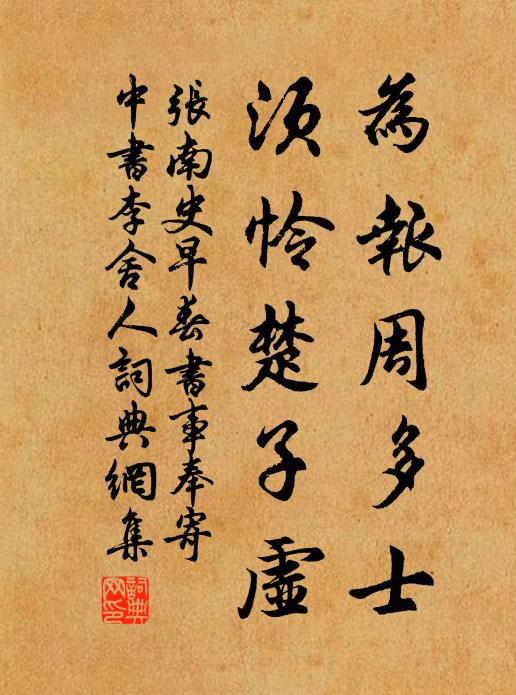 為報周多士
須怜楚子虛
張南史早春書事奉寄
中書李舍人詞典網集
詞典
网印